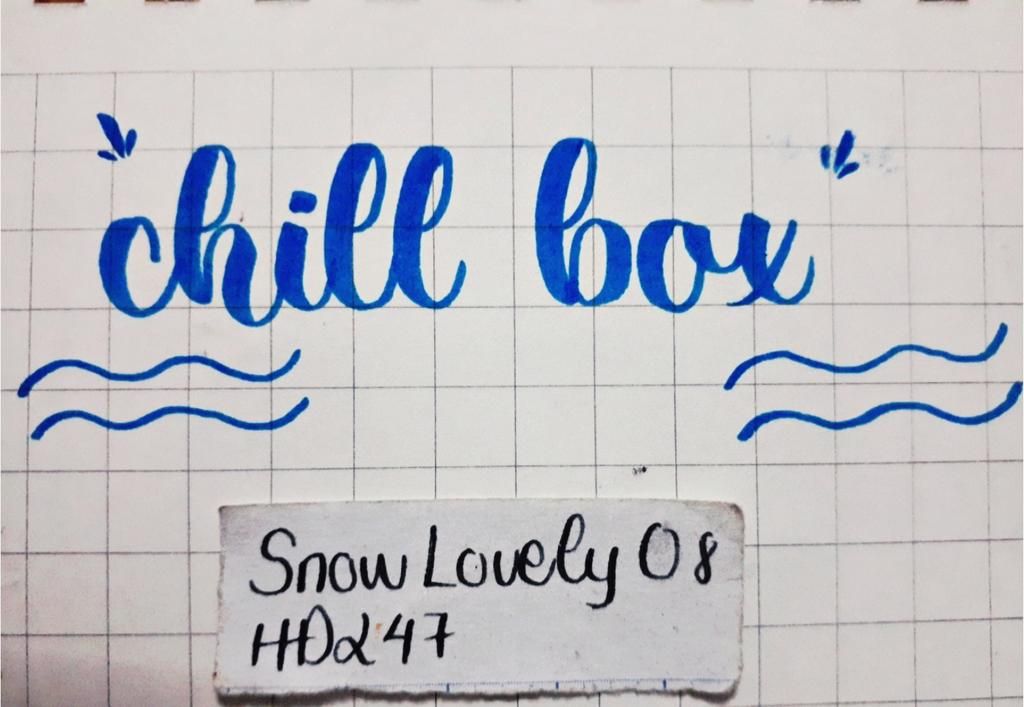 chill box
Snow Lovely 08
HD247